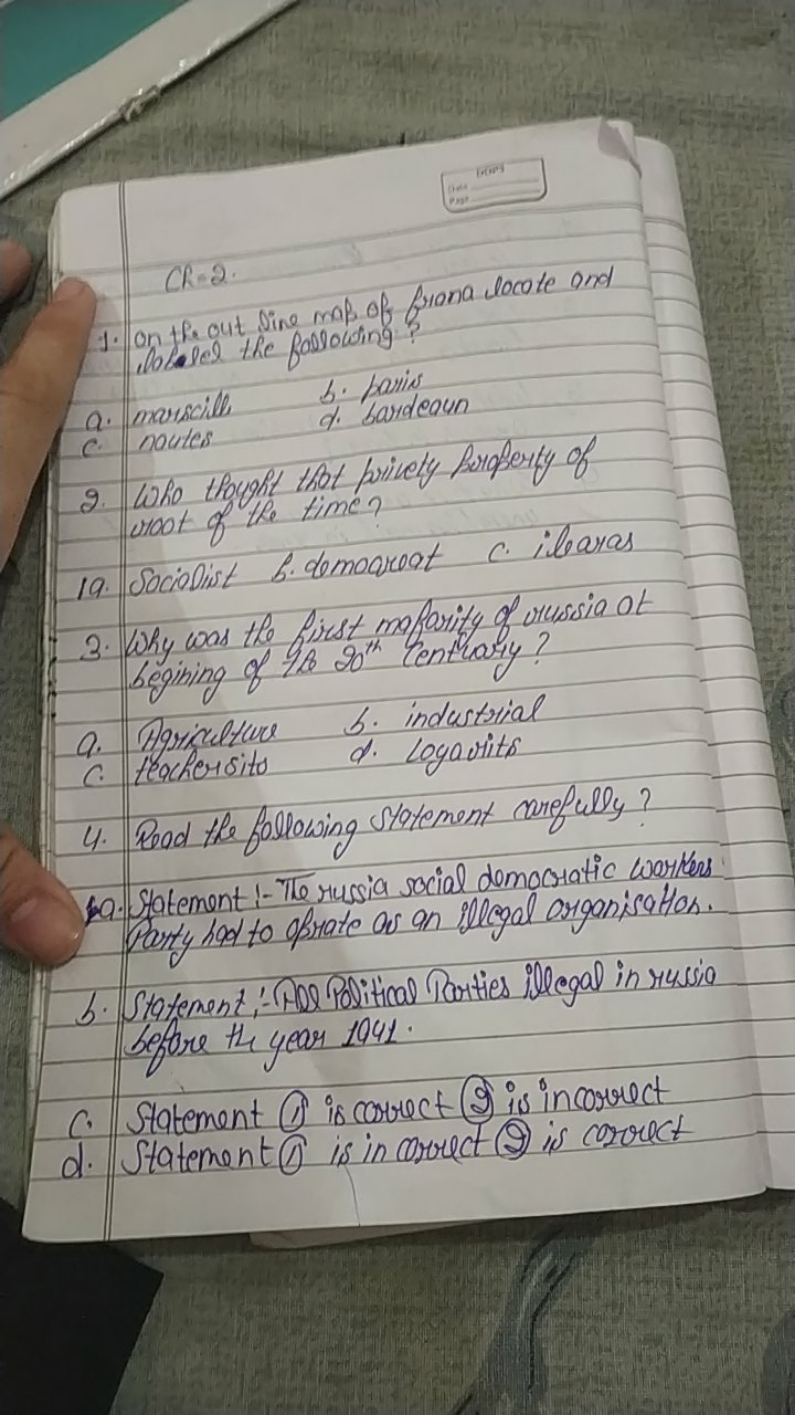 Date
Page
CR=2.
1. on the out line map of frana locate and
labeled the following?
a. marscill b. paris
c. nautes d. bardeaun
2. Who thought that privety property of
root of the time?
1a. Socialist b. democreat c. ileberas
3. Why was the first majarity of russia at
begining of the 20th Centuary?
a. Agriculture b. industrial
c. teachersits d. loyarits
4. Read the following Statement carefully?
a. Statement :- The russia social democratic workers
Party had to oprate as an illegal organisation.
b. Statement :- All Political Parties illegal in russia
before the year 1941.
c. Statement ① is correct ② is incorrect
d. Statement ① is in correct ② is correct